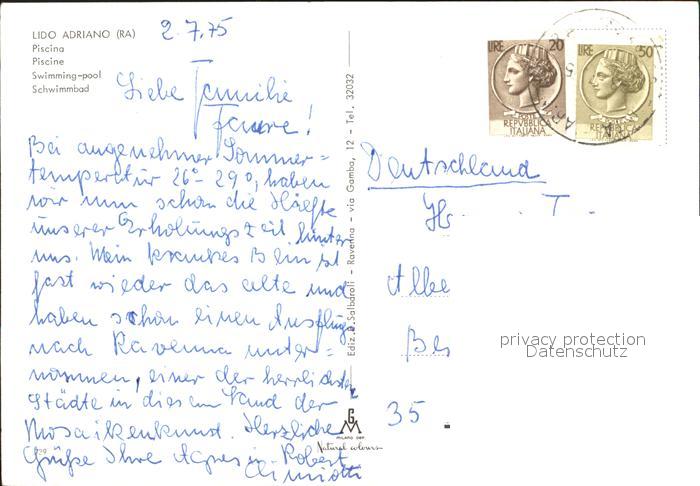 LIDO ADRIANO (RA)
Piscina
Piscine
Swimming-pool
Schwimmbad
2.7.75
Liebe Familie
Bei angenehmer Sommer=
temperatur 26°-29°, haben
wir nun schon die Hälfte
unserer Erholungszeit hinter
uns. Mein krankes Bein ist
fast wieder das alte und
haben schon einen Ausflug
nach Ravenna unter=
nommen, einer der herrlichsten
Städte in diesem Land der
Mosaikenkunst. Herzliche
Grüße Ihre Agnes u. Robert
Ediz. D. Salbaroli - Ravenna - via Gamba, 12 - Tel. 32032
MILANO
Natural colours
LIRE 20
POSTE
REPVBBLICA
ITALIANA
LIRE 50
POSTE
REPVBBLICA
ITALIANA
Deutschland
T
Albe
Be
35
privacy protection
Datenschutz